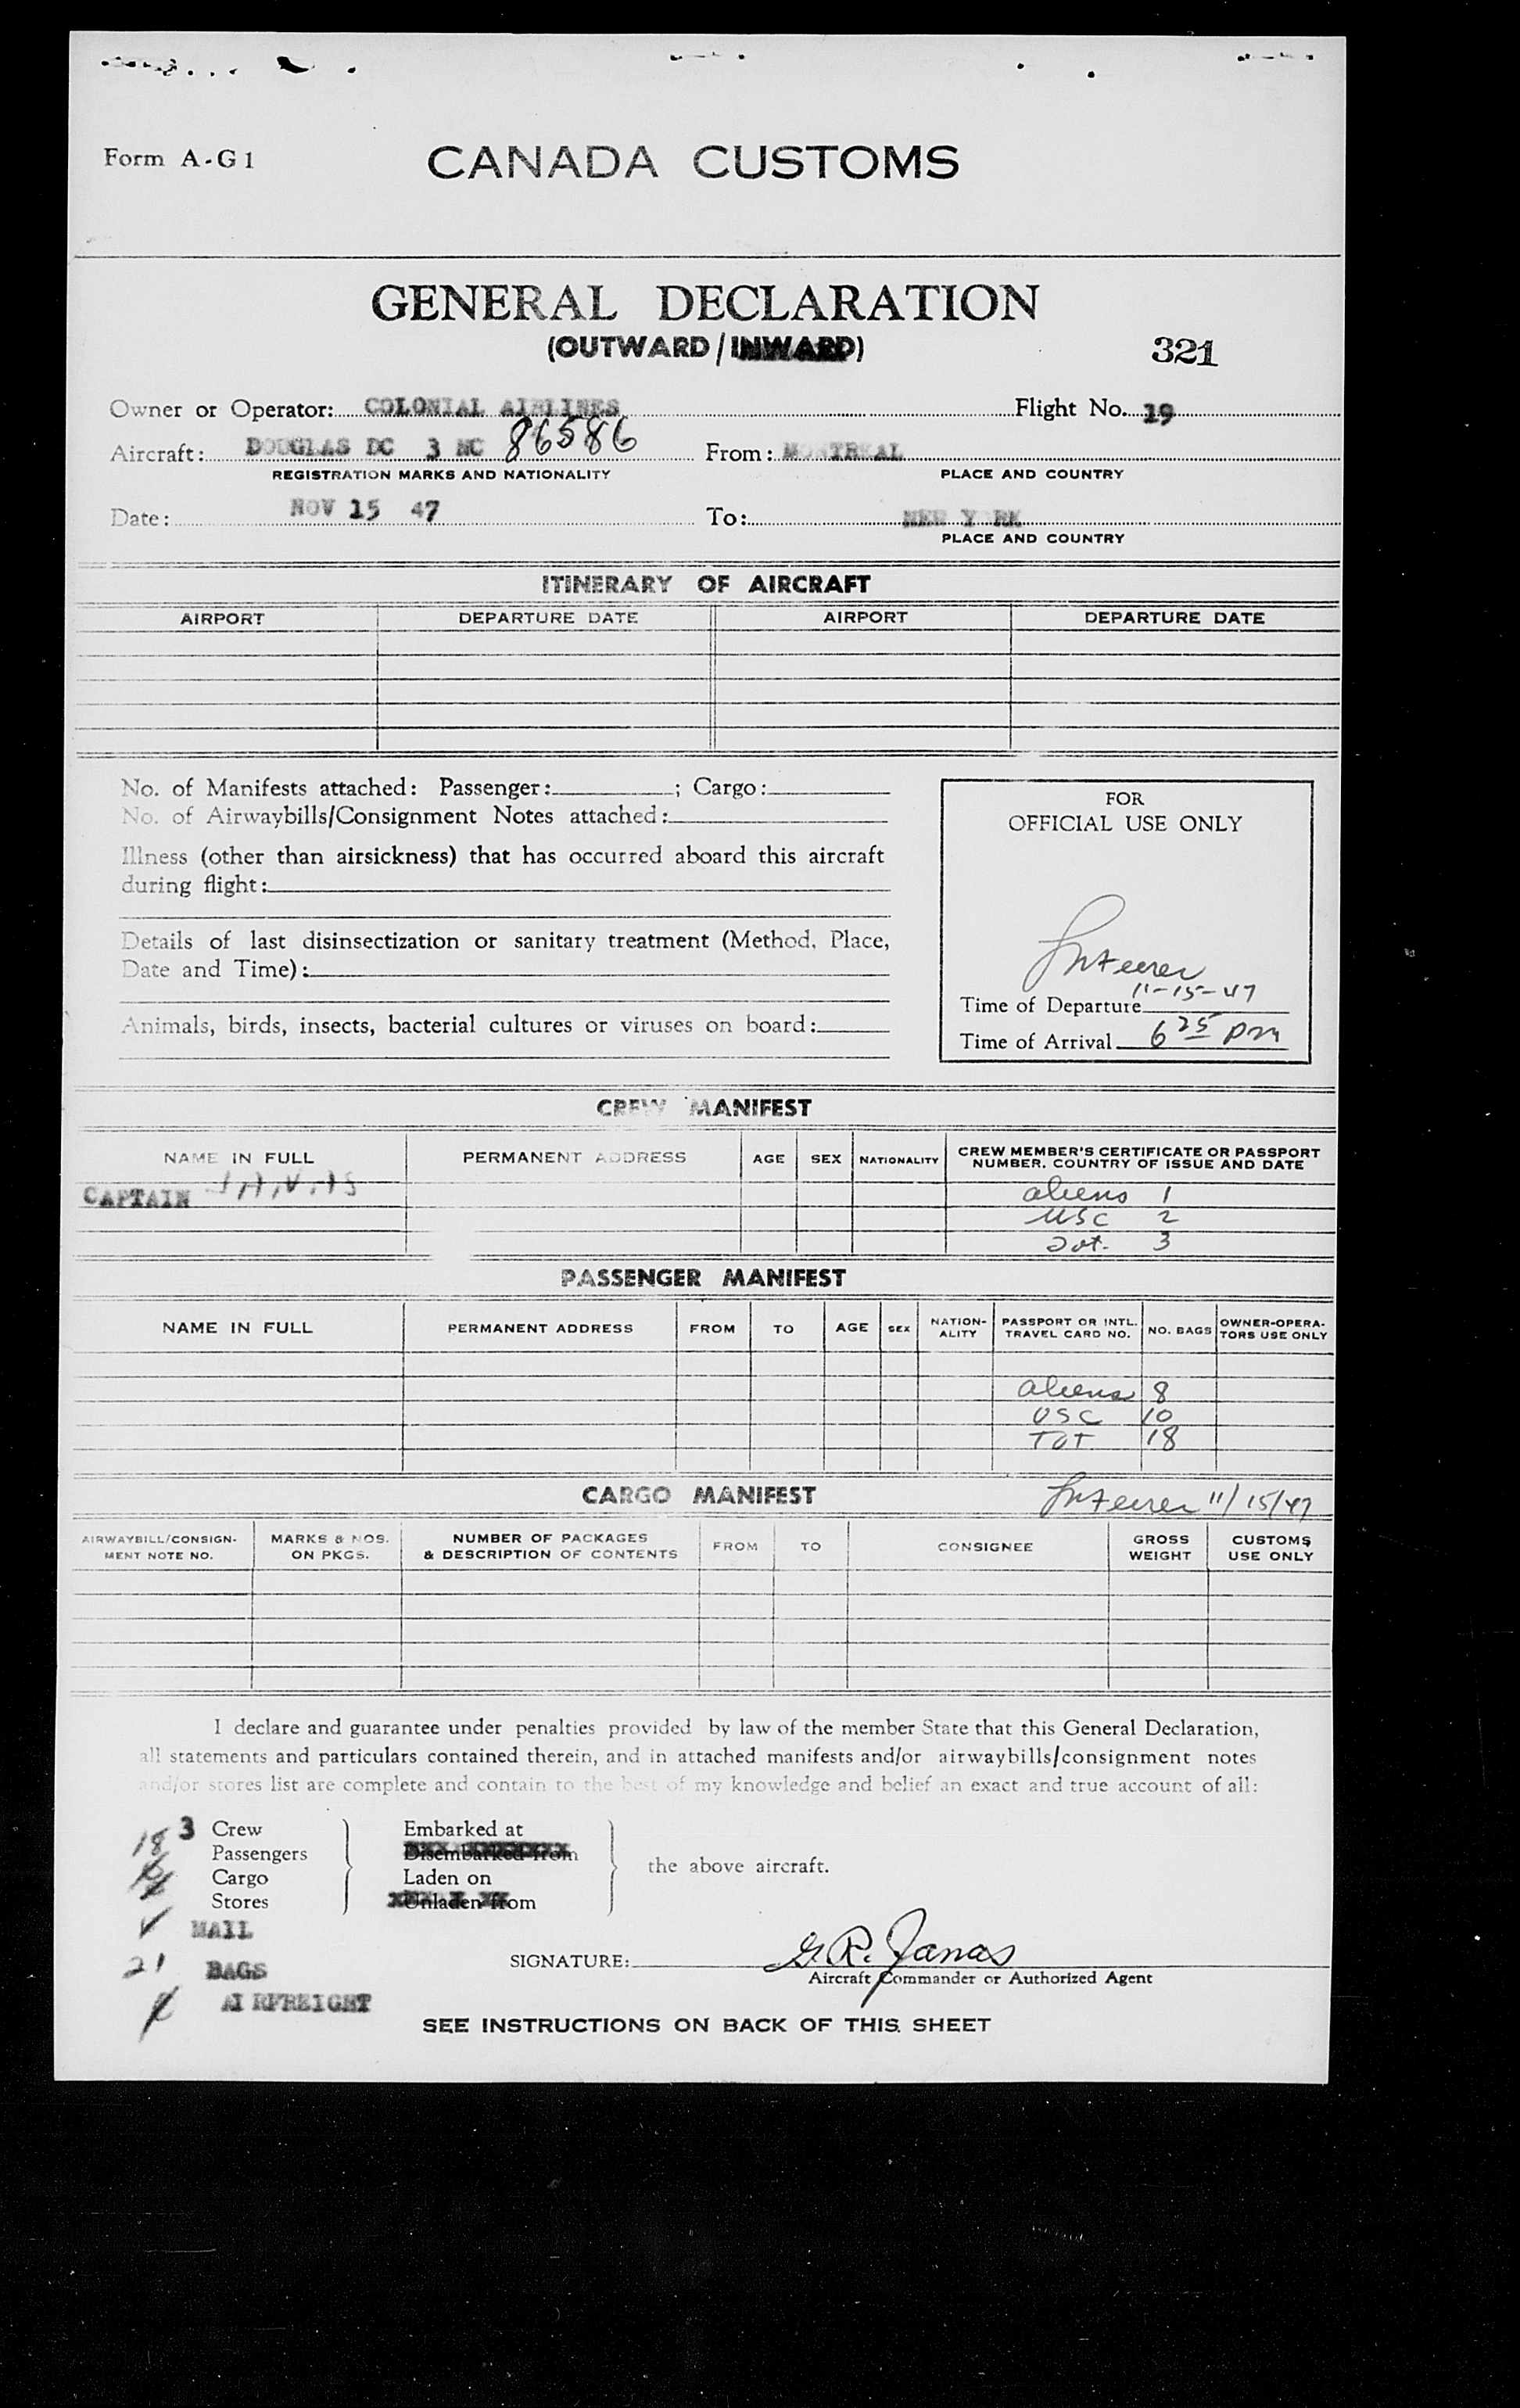 Form A-G1
CANADA CUSTOMS
GENERAL DECLARATION
(OUTWARD/INWARD)
321
Owner or Operator: COLONIAL AIRLINES Flight No. 19
Aircraft: DOUGLAS DC 3 NC 86586 From: MONTREAL
REGISTRATION MARKS AND NATIONALITY PLACE AND COUNTRY
Date: NOV 15 47 To: NEW YORK
PLACE AND COUNTRY
ITINERARY OF AIRCRAFT
AIRPORT DEPARTURE DATE AIRPORT DEPARTURE DATE
No. of Manifests attached: Passenger: ; Cargo:
No. of Airwaybills/Consignment Notes attached:
Illness (other than airsickness) that has occurred aboard this aircraft
during flight:
Details of last disinsectization or sanitary treatment (Method, Place,
Date and Time):
Animals, birds, insects, bacterial cultures or viruses on board:
FOR
OFFICIAL USE ONLY
11-15-47
Time of Departure
Time of Arrival 6 25 pm
CREW MANIFEST
NAME IN FULL PERMANENT ADDRESS AGE SEX NATIONALITY CREW MEMBER'S CERTIFICATE OR PASSPORT
NUMBER, COUNTRY OF ISSUE AND DATE
CAPTAIN
aliens 1
USC 2
Tot. 3
PASSENGER MANIFEST
NAME IN FULL PERMANENT ADDRESS FROM TO AGE SEX NATION-
ALITY PASSPORT OR INTL.
TRAVEL CARD NO. NO. BAGS OWNER-OPERA-
TORS USE ONLY
aliens 8
USC 10
TOT 18
CARGO MANIFEST
11/15/47
AIRWAYBILL/CONSIGN-
MENT NOTE NO. MARKS & NOS.
ON PKGS. NUMBER OF PACKAGES
& DESCRIPTION OF CONTENTS FROM TO CONSIGNEE GROSS
WEIGHT CUSTOMS
USE ONLY
I declare and guarantee under penalties provided by law of the member State that this General Declaration,
all statements and particulars contained therein, and in attached manifests and/or airwaybills/consignment notes
and/or stores list are complete and contain to the best of my knowledge and belief an exact and true account of all:
3 Crew Embarked at
18 Passengers Disembarked from
Cargo Laden on
Stores Unladen from
the above aircraft.
MAIL
21 BAGS
AIRFREIGHT
SIGNATURE: G.R. Janas
Aircraft Commander or Authorized Agent
SEE INSTRUCTIONS ON BACK OF THIS SHEET